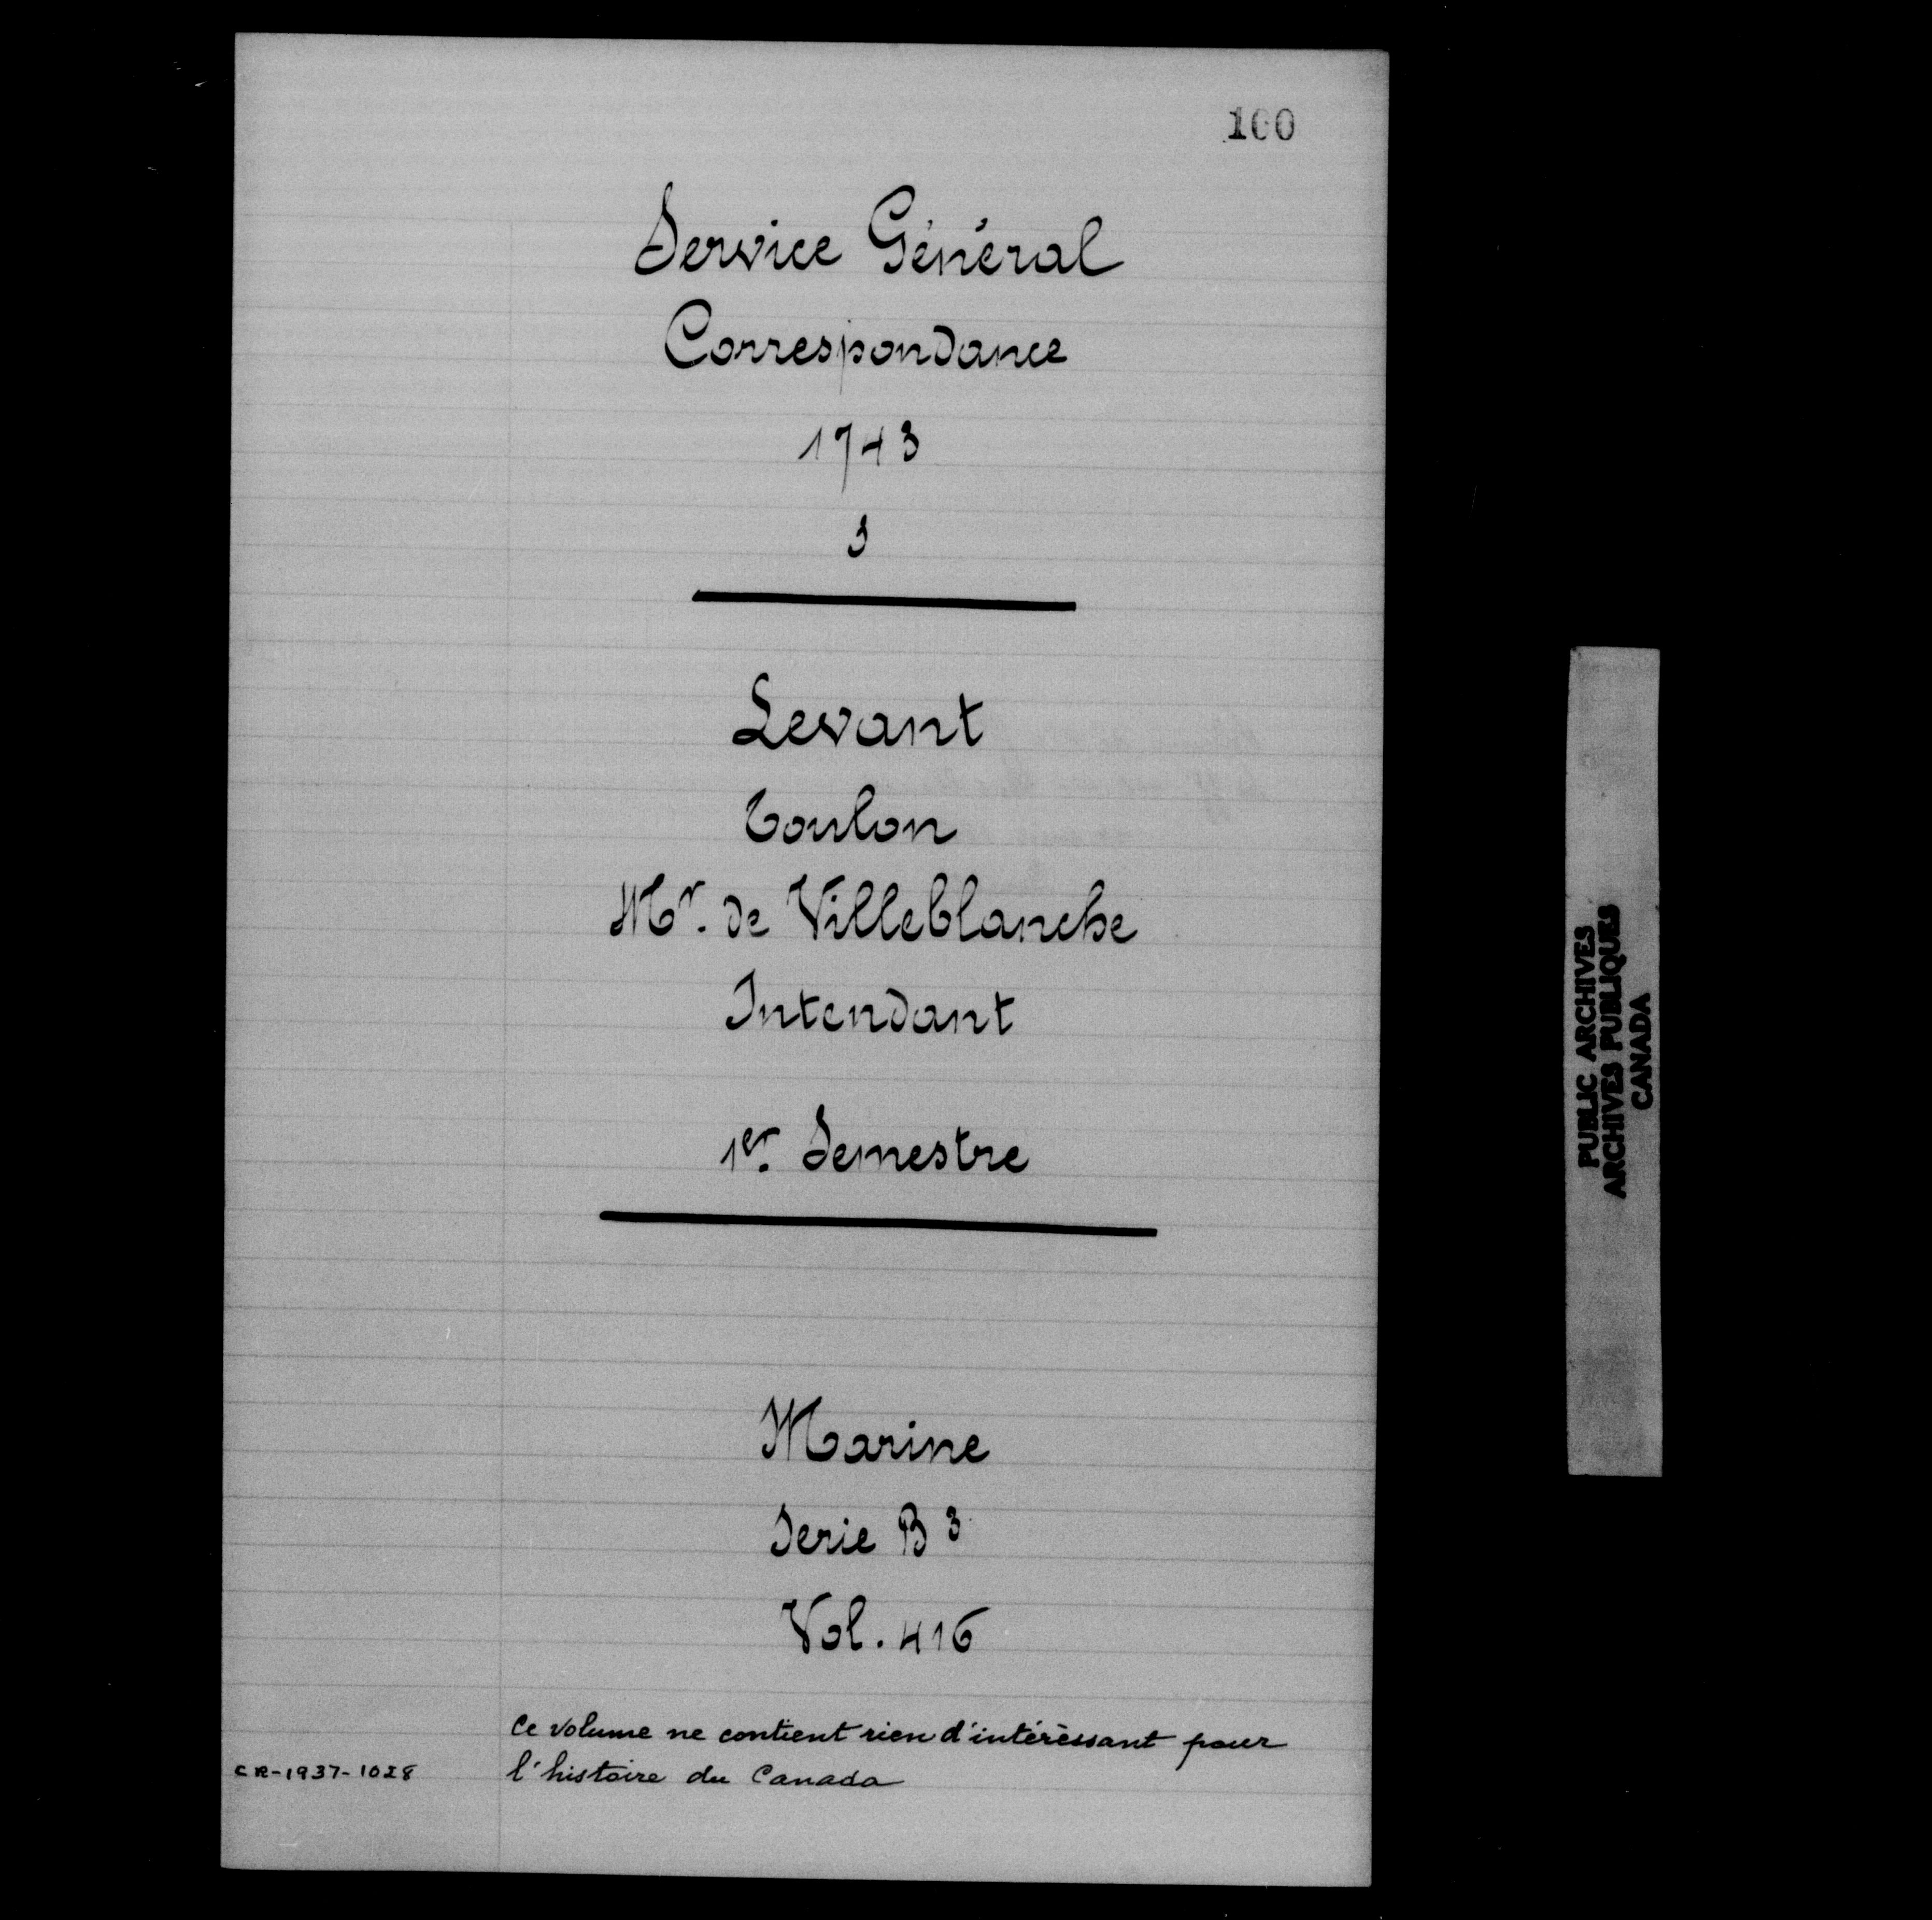 100
Service Général
Correspondance
1743
3
Levant
Toulon
Mr. de Villeblanche
Intendant
1er. Semestre
Marine
Serie B 3
Vol. 416
Ce volume ne contient rien d'intérèssant pour
l'histoire du Canada
CR-1937-1028
PUBLIC ARCHIVES
ARCHIVES PUBLIQUES
CANADA